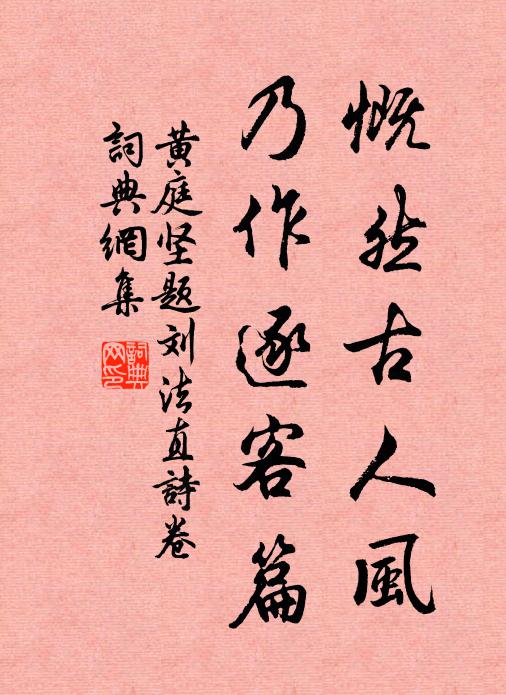 慨然古人風
乃作逐客篇
黄庭坚题刘法直詩卷
詞典網集
詞典网印